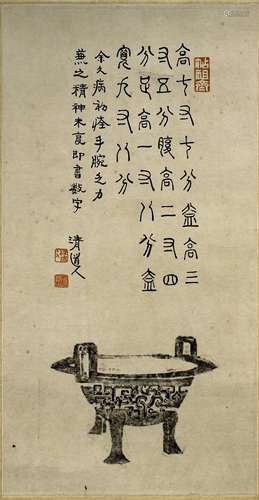 高七寸七分盆高三
寸五分腹高二寸四
分足高一寸八分盆
寬九寸八分
余久病初痊手腕乏力
兼之精神未复即書數字
清道人